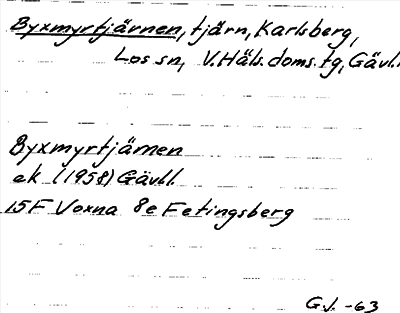 Byxmyrtjärnen, tjärn, Karlsberg,
Los sn, V.Häls.doms.tg, Gävl.l
Byxmyrtjärnen
ek (1958) Gävl.l.
15F Voxna 8e Fetingsberg
G.J. -63